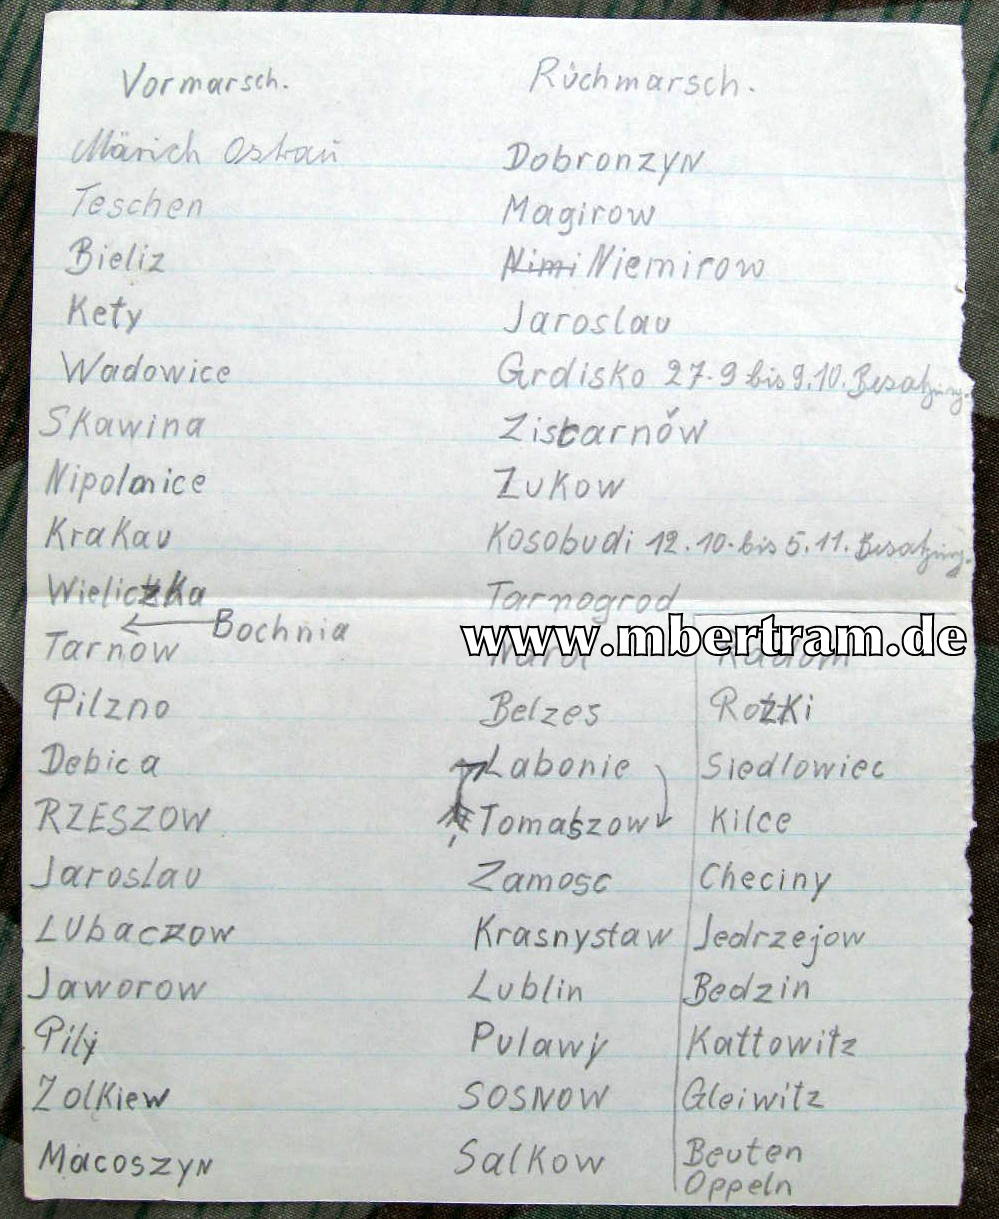 Vormarsch.
Märich Ostrau
Teschen
Bieliz
Kety
Wadowice
Skawina
Nipolonice
Krakau
Wieliczka
Bochnia
Tarnow
Pilzno
Debica
RZESZOW
Jaroslau
Lubaczow
Jaworow
Pily
Zolkiew
Macoszyn
Rückmarsch.
Dobronzyn
Magirow
Nimi Niemirow
Jaroslau
Grdisko 27.9 bis 9.10. Besatzung.
Zistarnów
Zukow
Kosobudi 12.10. bis 5.11. Besatzung.
Tarnogrod
www.mbertram.de
Belzes
Labonie
Tomaszow
Zamosc
Krasnystaw
Lublin
Pulawy
SOSNOW
Salkow
Radom
Rozki
Siedlowiec
Kilce
Checiny
Jedrzejow
Bedzin
Kattowitz
Gleiwitz
Beuten
Oppeln